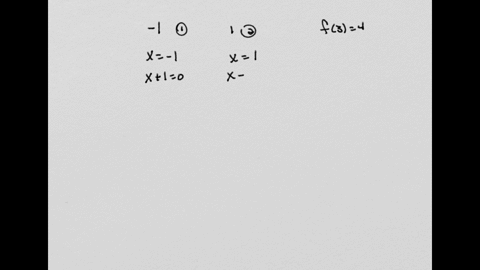 -1 ① 1 ② f(3)=4
x=-1 x=1
x+1=0 x-